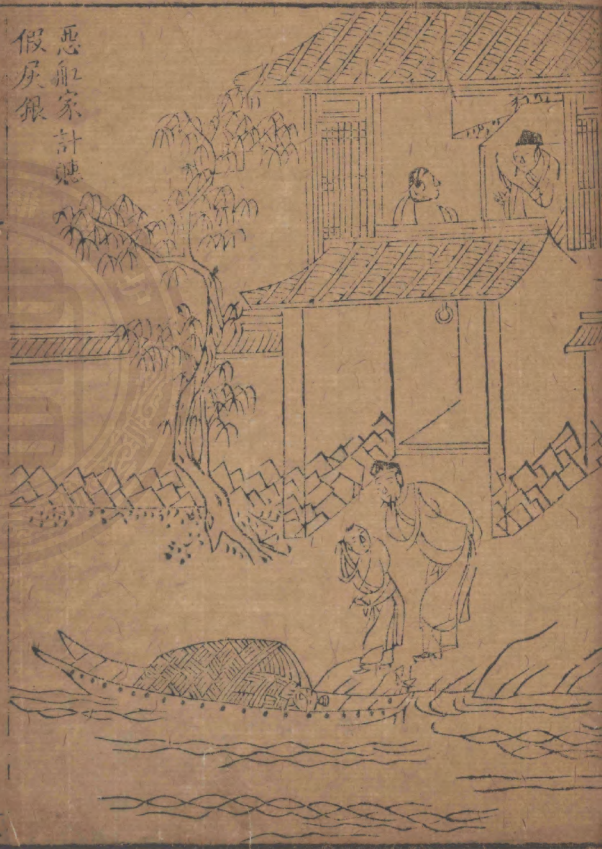 惡舡家計賺
假屍銀